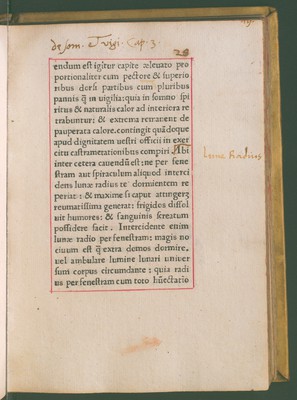 de som. & vigi. Cap. 3.
28
endum est igitur capite æleuato pro
portionaliter cum pectore & superio
ribus dorsi partibus cum pluribus
pannis q̃ in uigilia: quia in somno spi
ritus & naturalis calor ad interiora re
trahuntur: & extrema remanent de
pauperata calore. contingit quãdoque
apud dignitatem uestri officii in exer
citu castrametationibus compiri. Ibi
inter cetera cauendũ est: ne per fene
stram aut spiraculum aliquod interci
dens lunæ radius te dormientem re
periat: & maxime si caput attingerz
reumatissima generat: frigidos dissol
uit humores: & sanguinis screatum
possidere facit. Intercidente enim
lunæ radio per fenestram: magis no
ciuum est q̃ extra domos dormire.
uel ambulare lumine lunari uniuer
sum corpus circumdante: quia radi
us per fenestram cum toto hũectatio
Lunæ Radius